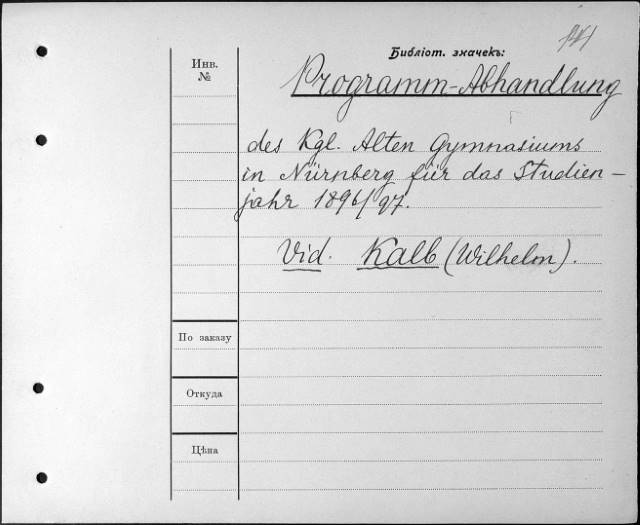 Библіот. значекъ:
Инв.
№
Programm-Abhandlung
des Kgl. Alten Gymnasiums
in Nürnberg für das Studien-
jahr 1896/97.
Vid. Kalb (Wilhelm).
По заказу
Откуда
Цѣна